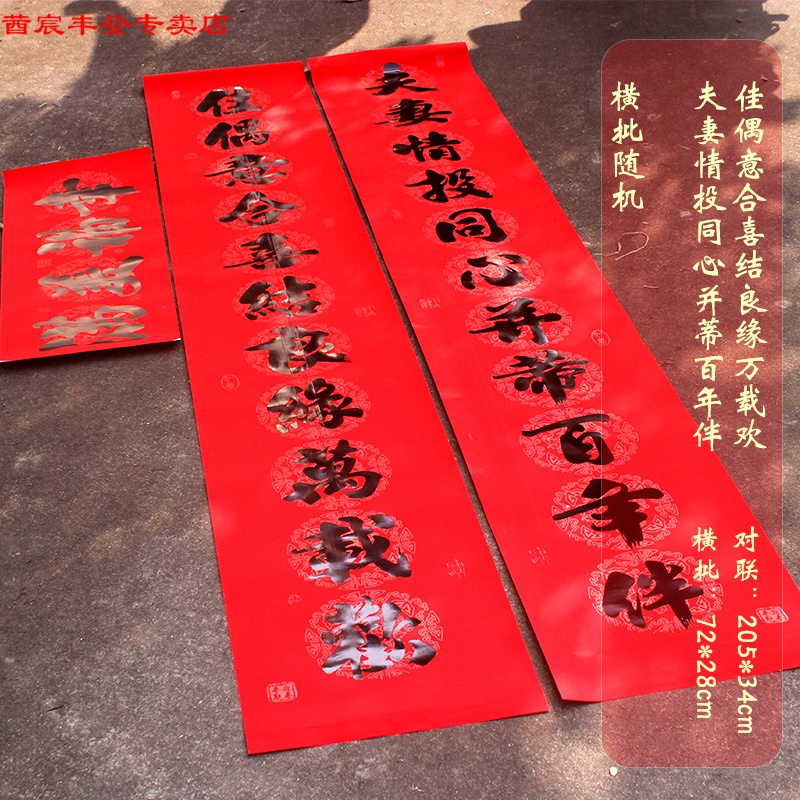 酋宸丰登专卖店
佳偶意合喜结良缘万载欢
夫妻情投同心并蒂百年伴
横批随机
对联：205*34cm
横批：72*28cm
夫妻情投同心并蒂百年伴
佳偶意合喜結良緣萬載歡